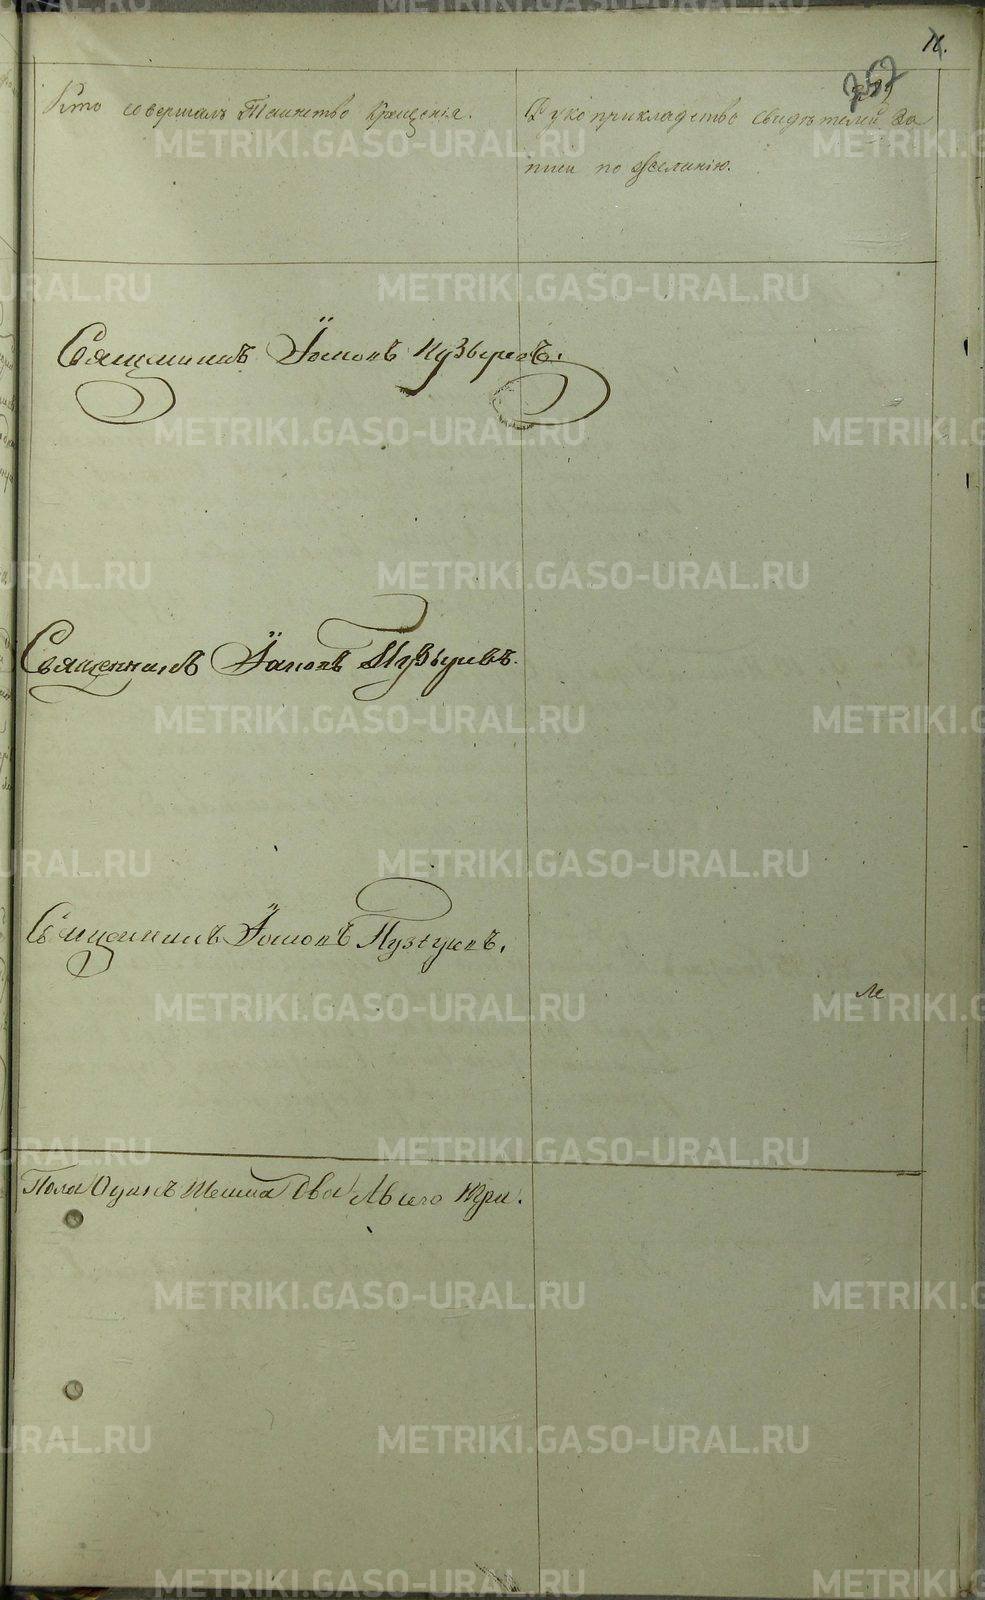 11.
757
Кто совершалъ Таинство Крещенія.
Рукоприкладство свидѣтелей за
писи по желанію.
Священникъ Іаковъ Пузыревъ.
Священникъ Іаковъ Пузыревъ.
Священникъ Іаковъ Пузыревъ.
Пола Одинъ Женска Два А всего Три.
METRIKI.GASO-URAL.RU